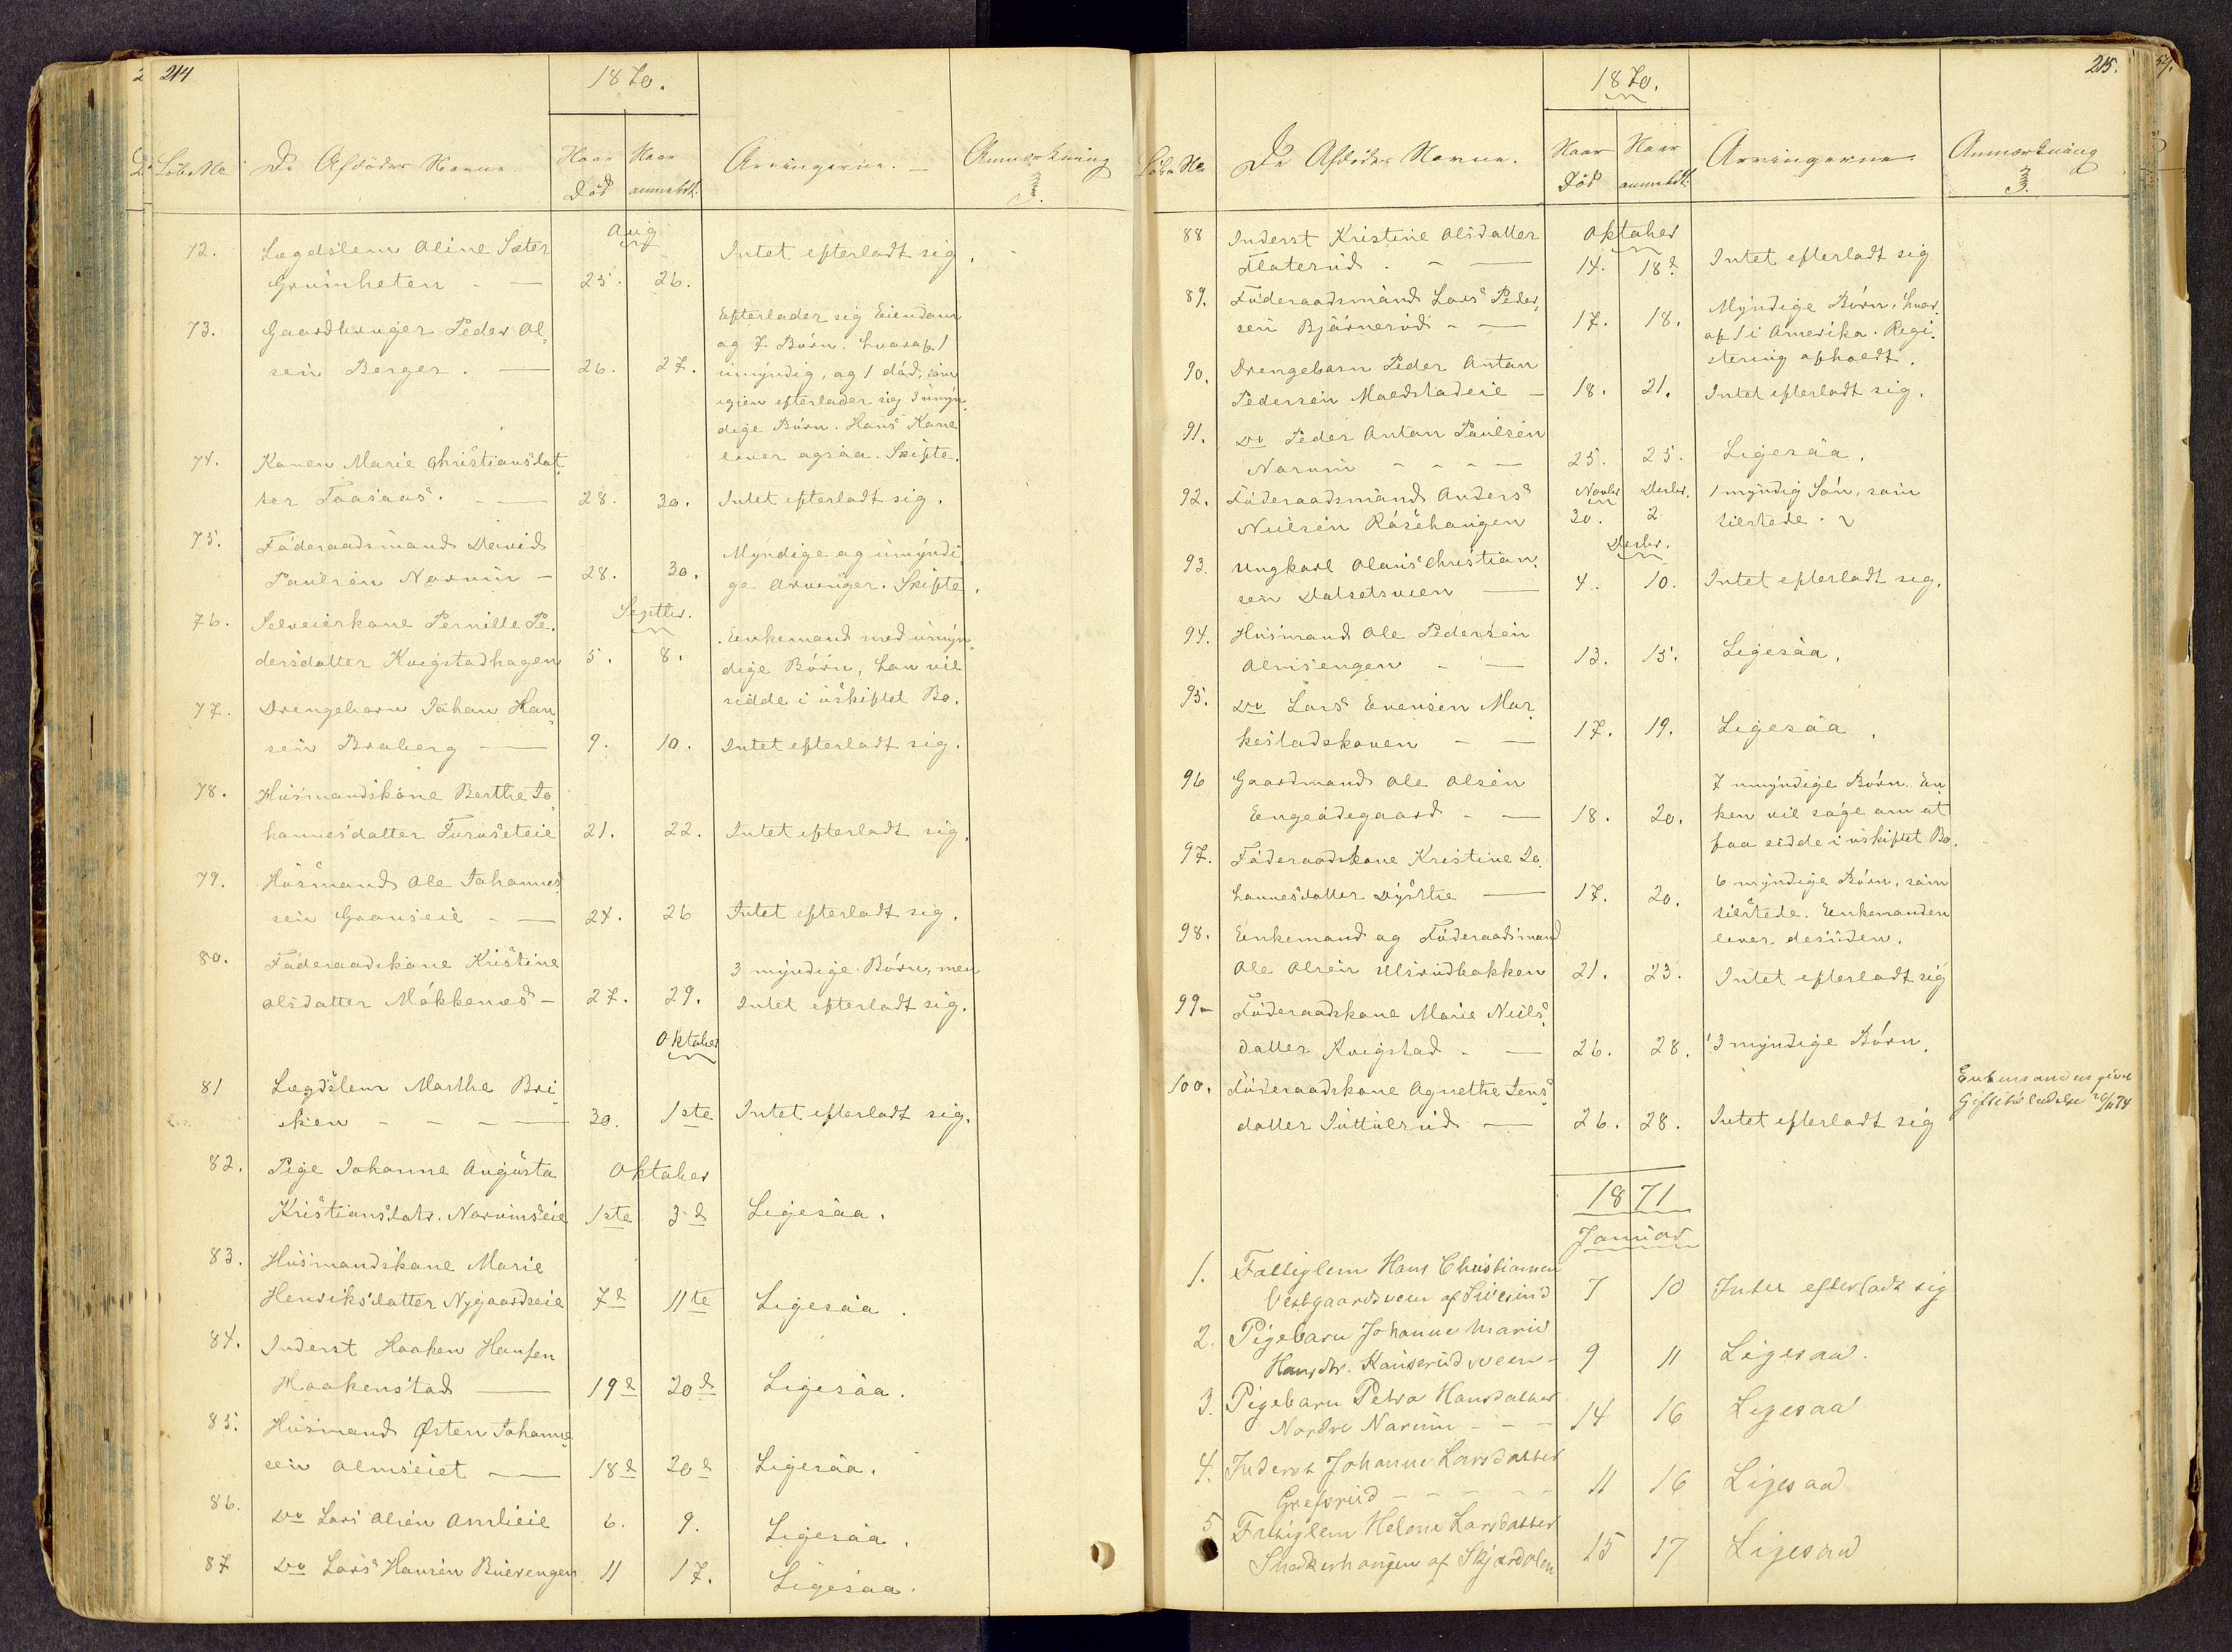 214
1870.
Löbe No
De Afdödes Navne.
Naar Død
Naar anmeldt.
Arvingerne.
Anmærkning
3.
Aug
72. Lægdslem Oline Sæter
Gruinheten - — 25. 26. Intet efterladt sig.
73. Gaardbruger Peder Ol-
sen Berger. — 26. 27.
Efterlader sig Eiendom
og 7 Børn, hvoraf 1
umyndig, og 1 død, som
igjen efterlader sig 3 umyn-
dige Børn. Hans Kone
lever ogsaa. Skifte.
74. Karen Marie Christiansdat
ter Taasaas. — 28. 30. Intet efterladt sig.
75. Föderaadsmand David
Paulsen Narum - 28. 30.
Myndige og umyndi-
ge Arvinger. Skifte.
Septbr.
76. Selveierkone Pernille Pe-
dersdatter Kvigstadhagen 5. 8.
Enkemand med umyn-
dige Børn, han vil
sidde i uskiftet Bo.
77. Drengebarn Johan Han-
sen Braberg — 9. 10. Intet efterladt sig.
78. Husmandskone Berthe Jo-
hannesdatter Furuseteie 21. 22. Intet efterladt sig.
79. Husmand Ole Johannes
sen Granseie - — 24. 26 Intet efterladt sig.
80. Föderaadskone Kristine
Olsdatter Mökkenes - 27. 29.
3 myndige Børn, men
Intet efterladt sig.
Oktober
81 Lægdslem Marthe Bri-
sken - - - — 30. 1ste Intet efterladt sig.
Oktober
82. Pige Johanne Augusta
Kristiansdatr. Narumseie 1ste 3d Ligesaa.
83. Husmandskone Marie
Henriksdatter Nygaardseie 7d 11te Ligesaa.
84. Inderst Haaken Hansen
Haakenstad — 19d 20d Ligesaa.
85. Husmand Østen Johanne-
sen Almseiet — 18d 20d Ligesaa.
86. Do Lars Olsen Amlieie 6. 9. Ligesaa.
87 Do Lars Hansen Buerengen 11 17. Ligesaa.
215.
1870.
Löbe No
De Afdödes Navne.
Naar Död
Naar anmeldt.
Arvingerne.
Anmærkning
3.
Oktober
88 Inderst Kristine Olsdatter
Flaterud. - — 14. 18d Intet efterladt sig
89. Föderaadsmand Lars Peder-
sen Bjørnerud - — 17. 18.
Myndige Børn, hvor-
af 1 i Amerika. Regi-
strering afholdt.
90. Drengebarn Peder Anton
Pedersen Maedstadeie - 18. 21. Intet efterladt sig.
91. Do Peder Anton Paulsen
Narum - - - — 25. 25. Ligesaa.
Novbr Decbr.
92. Föderaadsmand Anders
Nielsen Röisehaugen 30. 2
1 myndig Søn, som
tilstede.
Decbr.
93. Ungkarl Olaus Christian-
sen Dalsetsveen — 4. 10. Intet efterladt sig.
94. Husmand Ole Pedersen
Almsengen - — 13. 15. Ligesaa.
95. Do Lars Evensen Mar-
kestadskoven - — 17. 19. Ligesaa.
96 Gaardmand Ole Olsen
Engeödegaard - — 18. 20.
7 umyndige Børn. En-
ken vil søge om at
faa sidde i uskiftet Bo.
97. Föderaadskone Kristine Jo-
hannesdatter Dysthe — 17. 20.
6 myndige Børn, som
tilstede. Enkemanden
lever desuden.
98. Enkemand og Föderaadsmand
Ole Olsen Ulsrudbakken 21. 23. Intet efterladt sig
99 Föderaadskone Marie Niels-
datter Kvigstad. — 26. 28. 3 myndige Børn.
100. Föderaadskone Agnethe Jens-
datter Tuttulrud — 26. 28. Intet efterladt sig
Enkemanden given
1871
Januar
1. Fattiglem Hans Christiansen
Vestgaardsveen af Sivesind 7 10 Intet efterladt sig
2. Pigebarn Johanne Marie
Hansdtr. Kauserudsveen - 9 11 Ligesaa.
3. Pigebarn Petra Hansdatter
Nordre Narum - - - 14 16 Ligesaa
4. Inderst Johanne Larsdatter
Grefsrud - - - - 11 16 Ligesaa
5 Fattiglem Helene Larsdatter
Snedkerhaugen af Skjærdalen 15 17 Ligesaa